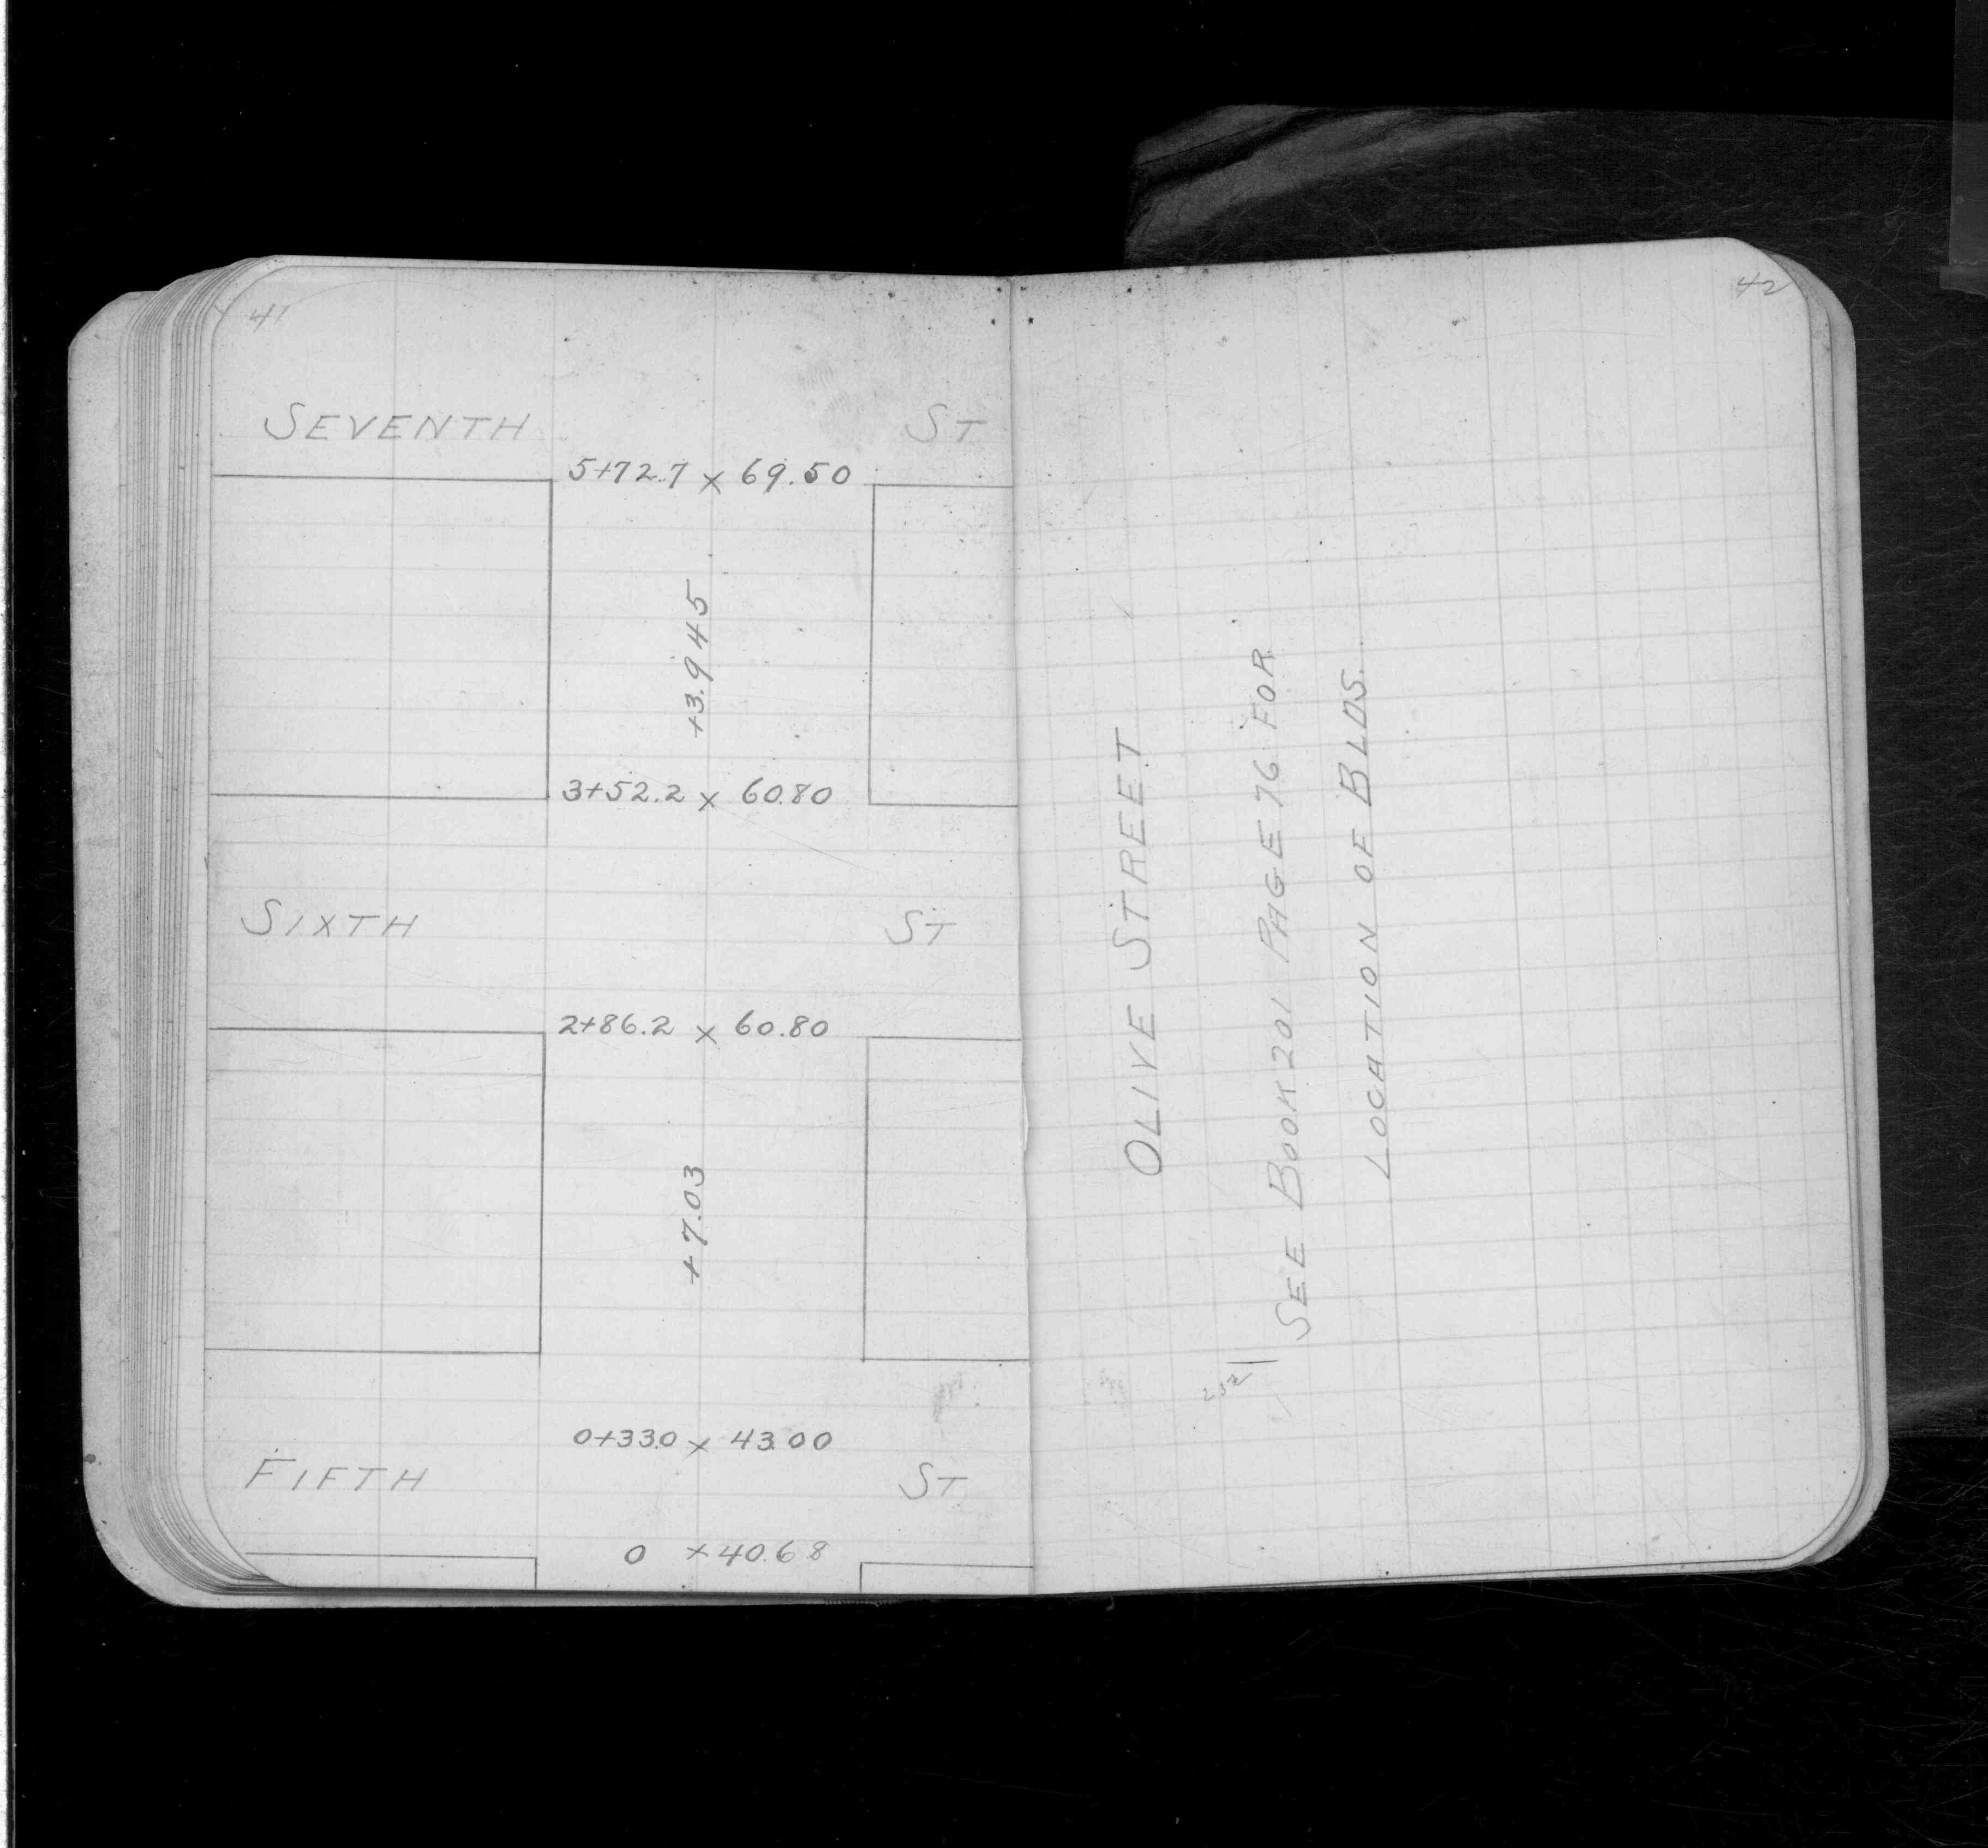 41
SEVENTH ST
5+72.7 x 69.50
+3.945
3+52.2 x 60.80
SIXTH ST
2+86.2 x 60.80
+7.03
0+33.0 x 43.00
FIFTH ST
0 x 40.68
42
OLIVE STREET
SEE BOOK 201 PAGE 76 FOR
LOCATION OF BLDS.